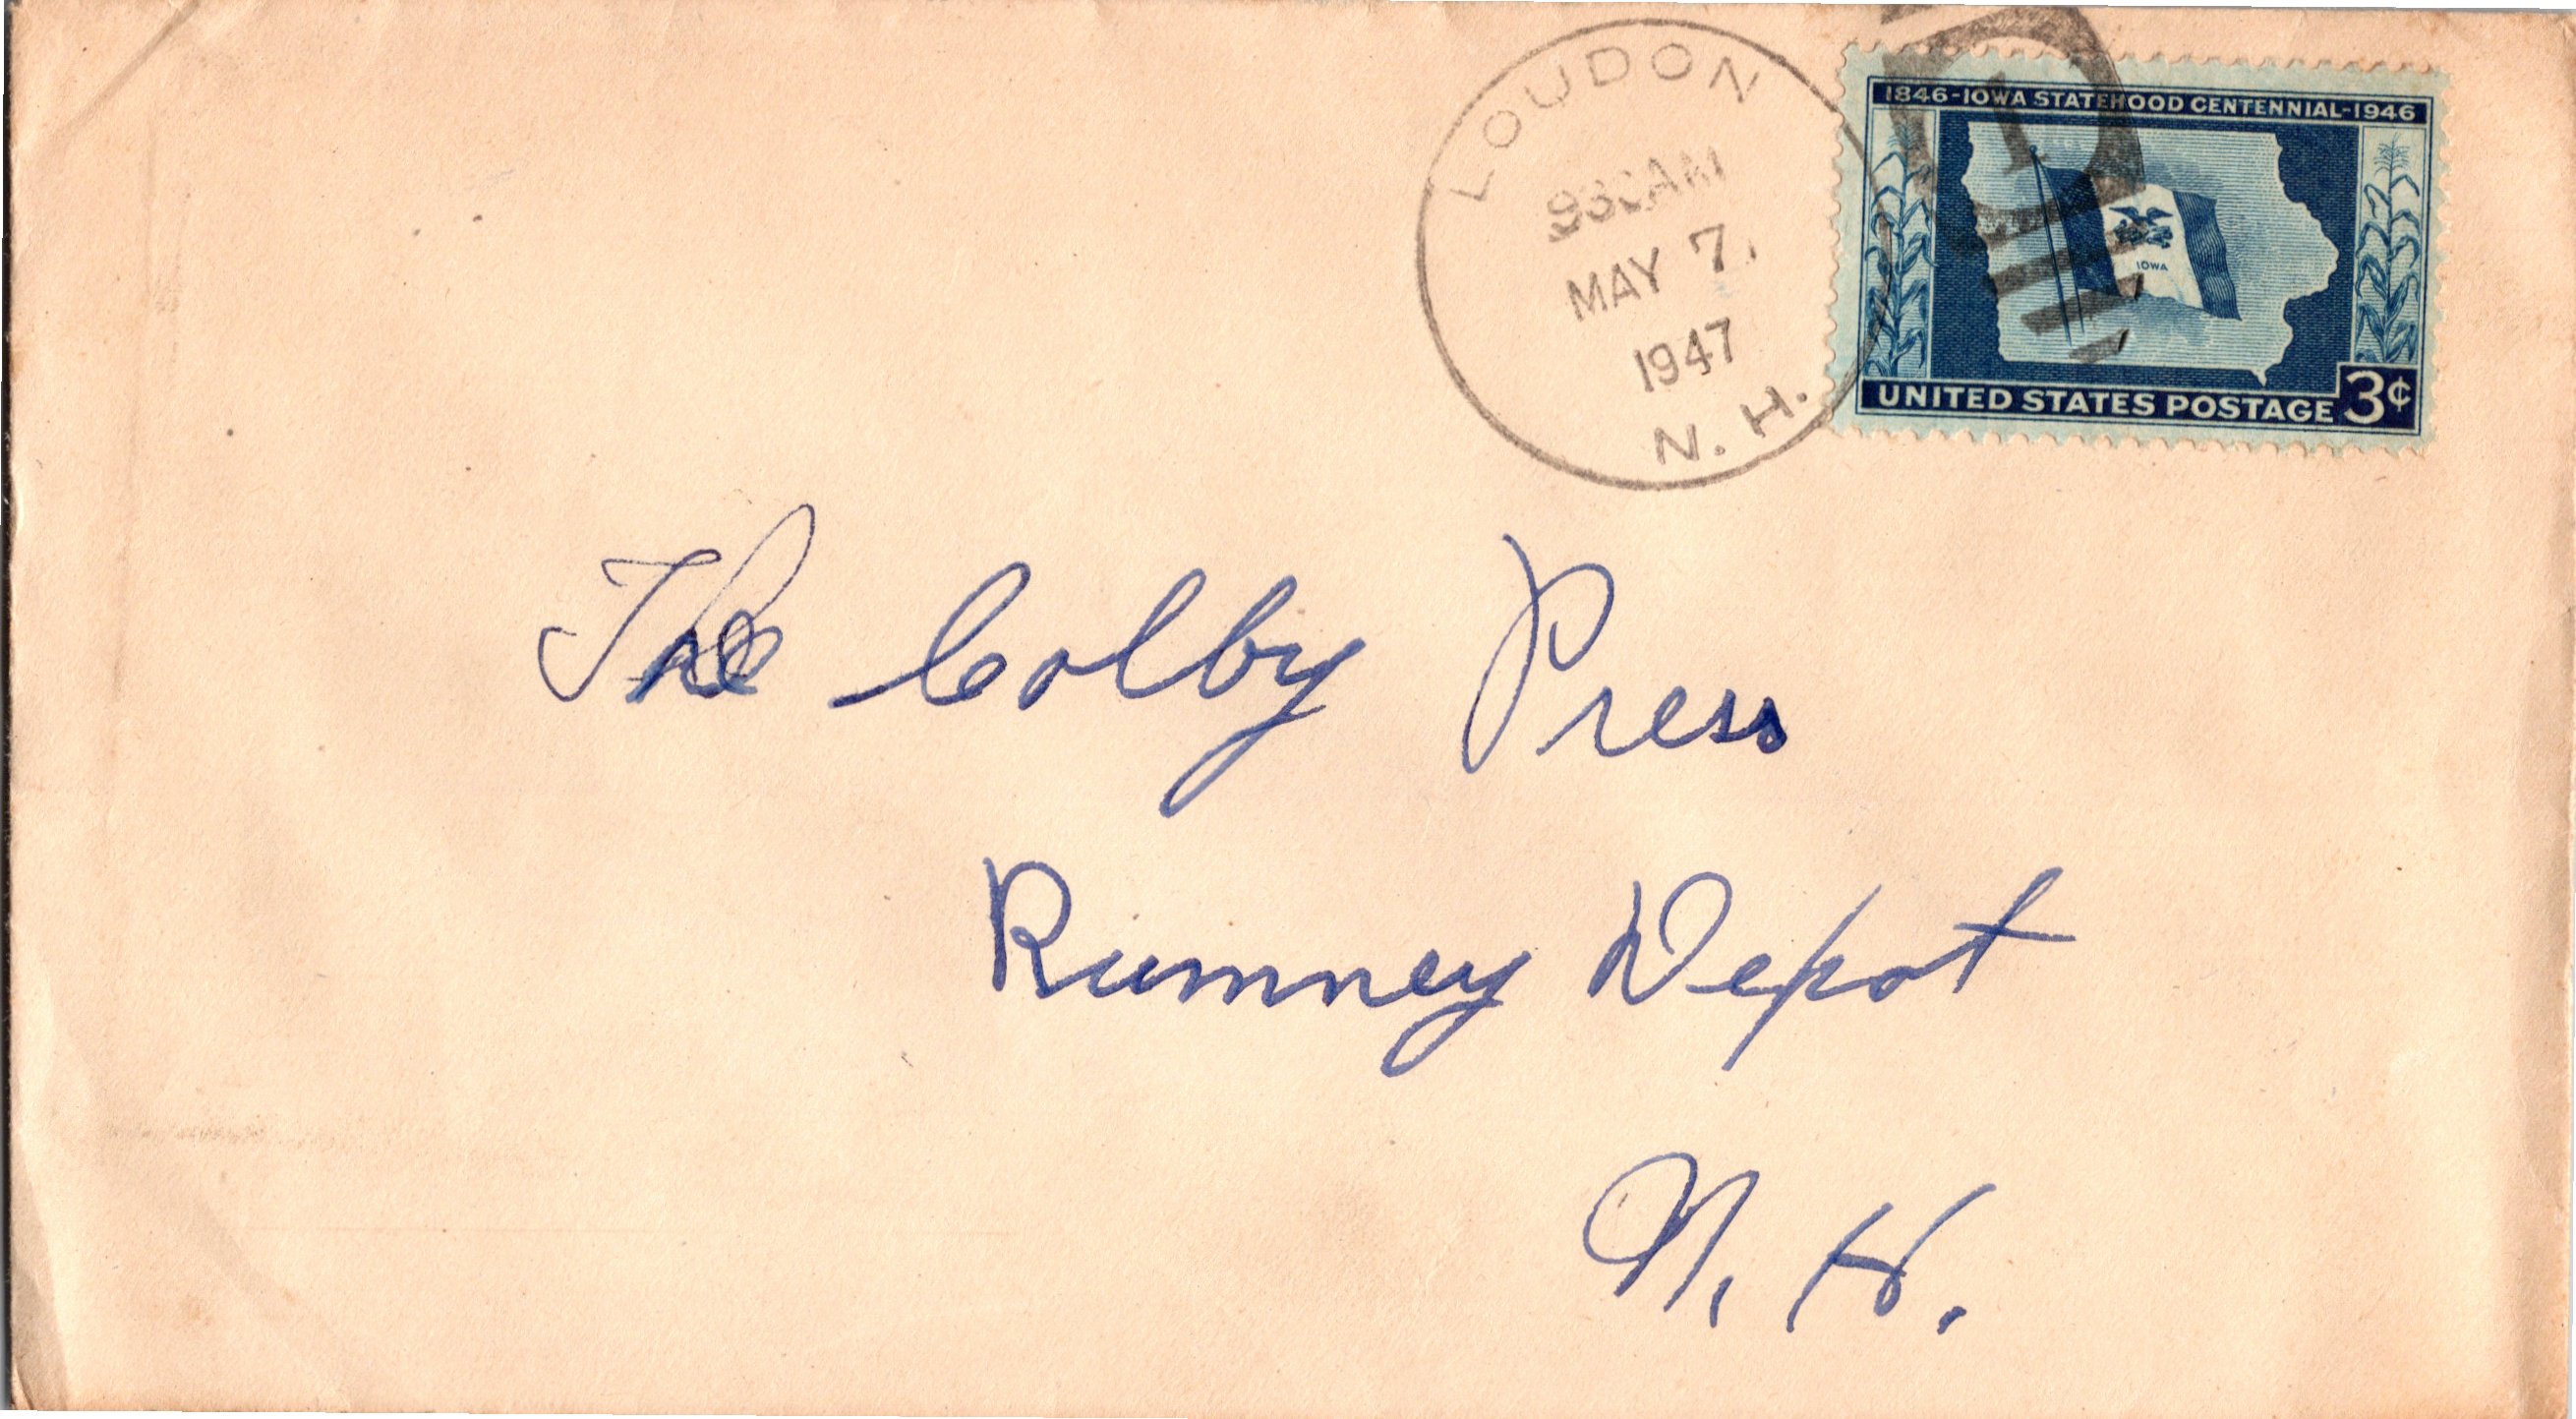 LOUDON
930AM
MAY 7
1947
N. H.
1846-IOWA STATEHOOD CENTENNIAL-1946
IOWA
UNITED STATES POSTAGE 3¢
The Colby Press
Rumney Depot
N. H.